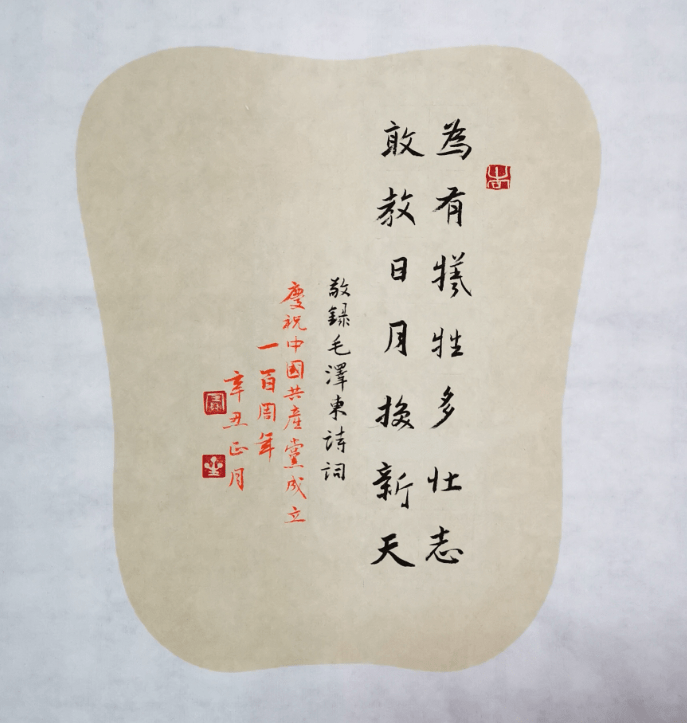 為有犧牲多壯志
敢教日月換新天
敬録毛澤東詩詞
慶祝中國共產黨成立
一百周年
辛丑正月